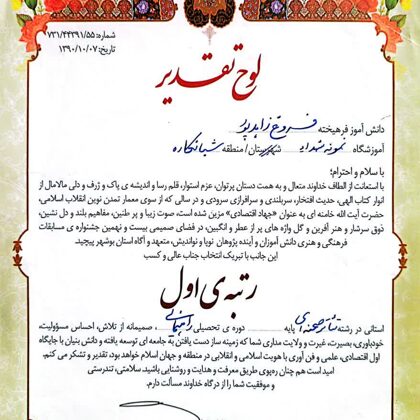 شماره: ۷۳۱/۴۴۳۹۱/۵۵
تاریخ: ۱۳۹۰/۱۰/۰۷
لوح تقدیر
دانش آموز فرهیخته فروتن زاهدپور
آموزشگاه نمونه شهداء شهرستان/منطقه شبانکاره
با سلام و احترام؛
با استعانت از الطاف خداوند متعال و به همت دستان پرتوان، عزم استوار، قلم رسا و اندیشه ی پاک و ژرف و دلی مالامال از
انوار کتاب الهی، حدیث افتخار، سربلندی و سرافرازی سرودی و در سالی که از سوی معمار تمدن نوین انقلاب اسلامی،
حضرت آیت الله خامنه ای به عنوان «جهاد اقتصادی» مزین شده است، صوت زیبا و پر طنین، مفاهیم بلند و دل نشین،
ذوق سرشار و هنر آفرین و گل واژه های پر از عطر و انگبین، در فضای صمیمی بیست و نهمین جشنواره ی مسابقات
فرهنگی و هنری دانش آموزان و آینده پژوهان نویا و نواندیش، متعهد و آگاه استان بوشهر پیچید.
این جانب با تبریک انتخاب جناب عالی و کسب
رتبه ی اول
استانی در رشته تئاتر صحنه ای پایه دوره ی تحصیلی راهنمایی، صمیمانه از تلاش، احساس مسؤولیت،
خودباوری، بصیرت، غیرت و ولایت مداری شما که زمینه ساز دست یافتن به جامعه ای توسعه یافته و دانش بنیان با جایگاه
اول اقتصادی، علمی و فن آوری با هویت اسلامی و انقلابی در منطقه و جهان اسلام خواهد بود، تقدیر و تشکر می کنم.
امید است هم چنان ره‌پوی طریق معرفت و هدایت و روشنایی باشید. سلامتی، تندرستی
و موفقیت شما را از درگاه خداوند مسألت دارم.